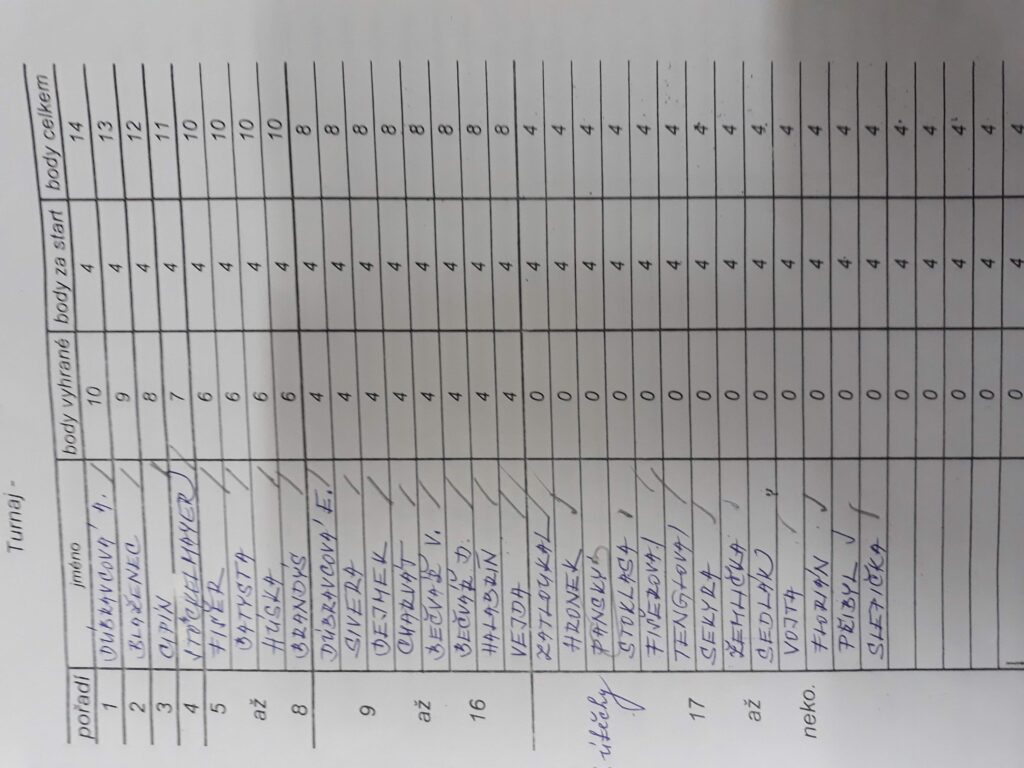 Turnaj -
pořadí jméno body vyhrané body za start body celkem
1 DUBRAVCOVÁ 10 4 14
2 BLAŽENEC 9 4 13
3 8 4 12
4 7 4 11
5 FIŠER 6 4 10
BATYSTA 6 4 10
až HUSKA 6 4 10
8 BRANDÝS 6 4 10
DUBRAVCOVÁ E. 4 4 8
SIVERA 4 4 8
9 DEJMEK 4 4 8
CHARVÁT 4 4 8
až BEČVÁŘ V. 4 4 8
BEČVÁŘ D. 4 4 8
16 HALABRÍN 4 4 8
VEJDA 4 4 8
ZATLOUKAL 0 4 4
HRONEK 0 4 4
PANSKÝ 0 4 4
útěchy STOKLASA 0 4 4
FIŠEROVÁ 0 4 4
TENGLOVÁ 0 4 4
17 SEKYRA 0 4 4
ŽEMLIČKA 0 4 4
až SEDLÁK 0 4 4
VOJTA 0 4 4
neko. FLORIÁN 0 4 4
PŘIBYL 0 4 4
SLEPIČKA 0 4 4
0 4 4
0 4 4
0 4 4
0 4 4
0 4 4